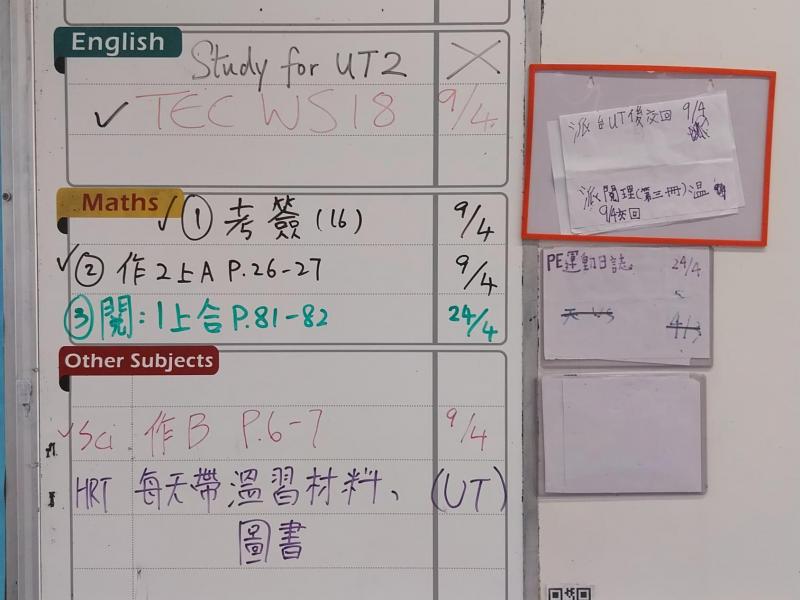 English
Study for UT2 ×
✓ TEC WS18 9/4
Maths
✓ ① 考簽(16) 9/4
✓ ② 作2上A P.26-27 9/4
③ 閱:1上合P.81-82 24/4
Other Subjects
✓ Sci 作B P.6-7 9/4
HRT 每天帶溫習材料、(UT)
圖書
派台UT後交回 9/4
派閱理(第三冊)溫
9/4交回
PE運動日誌 24/4